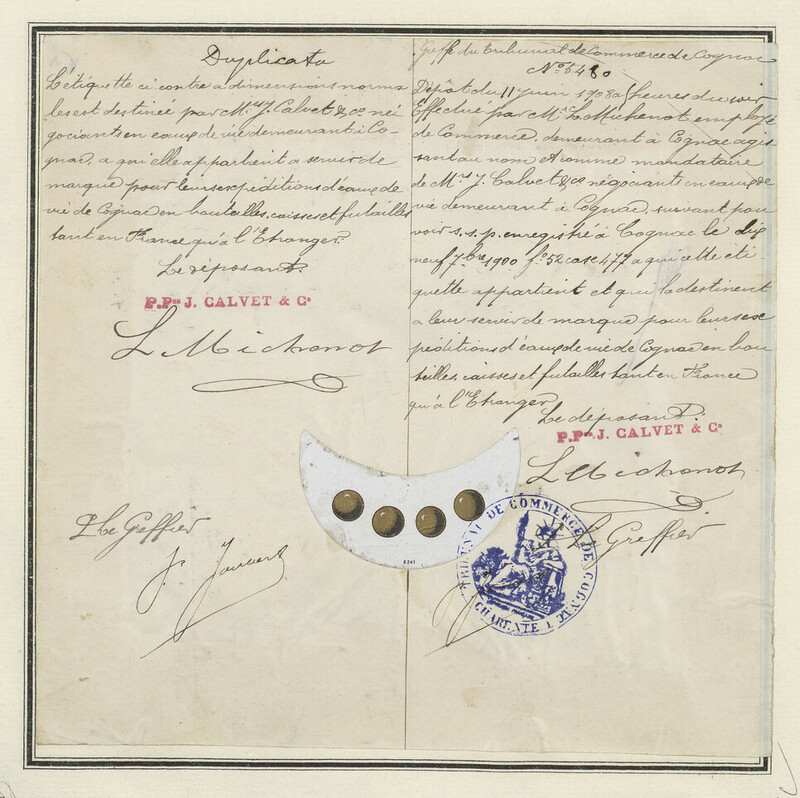 Duplicata
L'étiquette ci contre a dimensions norma
les est destinée par Mrs J. Calvet & Co né
gociants en eaux de vie demeurant à Co-
gnac, a qui elle appartient a servir de
marque pour leurs expéditions d'eaux de
vie de Cognac en bouteilles, caisses et futailles
tant en France qu'à l'Etranger.
Le déposant.
P.Pon J. CALVET & Co
L Michenot
P. le Greffier
Greffe du tribunal de Commerce de Cognac
No 5480
Dépôt du 11 juin 1908 a heures du soir
Effectué par Mr L Michenot employé
de Commerce, demeurant à Cognac agis
sant au nom et comme mandataire
de Mrs J. Calvet & co négociants en eaux de
vie demeurant à Cognac, suivant pou
voir s.s.p. enregistré à Cognac le dix
neuf 7bre 1900 fo 52 case 477 a qui cette éti
quette appartient et qui la destinent
a leur servir de marque pour leurs ex
péditions d'eaux de vie de Cognac en bou
teilles, caisses et futailles tant en France
qu'à l'Etranger
Le déposant.
P.Pon J. CALVET & Co
L Michenot
Greffier
6341
TRIBUNAL DE COMMERCE DE COGNAC
CHARENTE